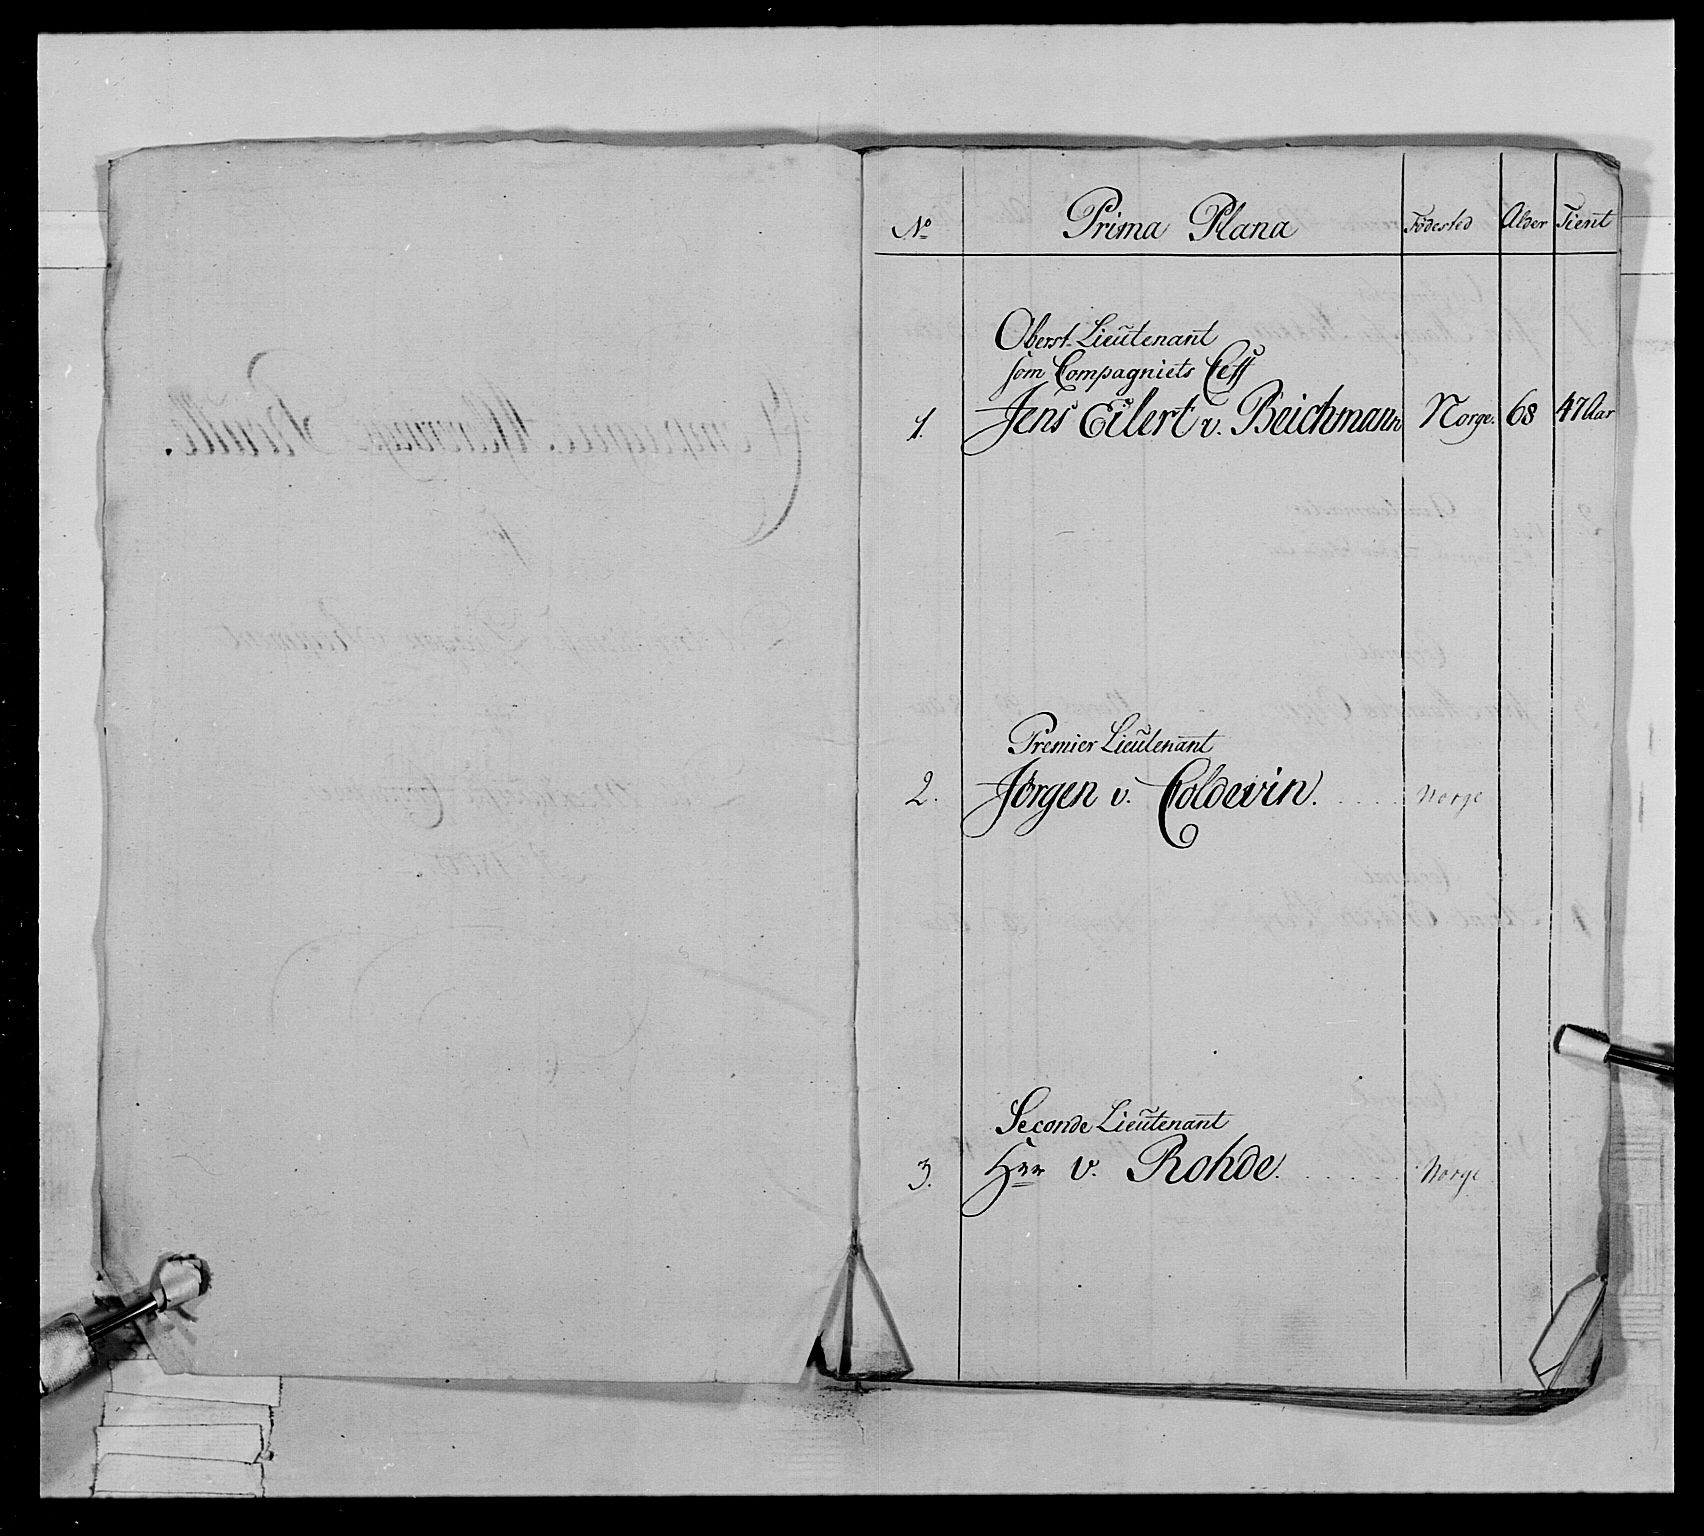 No Prima Plana Födested Alder Tient
Oberst-Lieutenant
som Compagniets Cheff
1. Jens Eilert v. Beichmann Norge. 68 47 Aar
Premier Lieutenant
2. Jörgen v. Coldevin. Norge
Seconde Lieutenant
3. Hrr v. Rohde. Norge